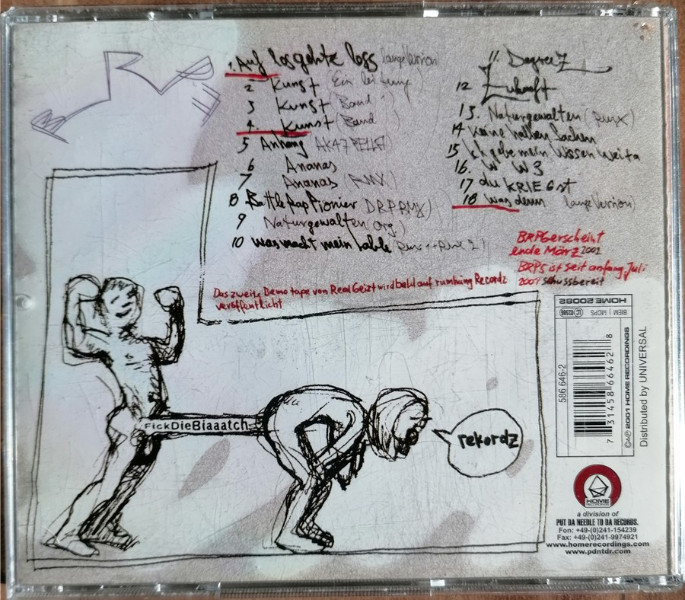 1. Auf losgehtz loss (langeVersion)
2 Kunst Einleitung
3 Kunst (Band
4. Kunst (Band)
5 Anhang AK47
6 Ananas
7 Ananas (RMX)
8 BattleRapPionier DRPRMX)
9 Naturgewalten org)
10 was macht mein
11. DegreeZ
12 Zukunft
13. Naturgewalten (RMX)
14 keine halben Sachen
15 Ich gebe mein Wissen weita
16. W W 3
17 du KRIEGst
18 was denn langeVersion)
BRPGerscheint
ende März 2002
BRP5 ist seit anfang Juli
2001 schussbereit
Das zweite Demotape von RealGeizt wird bald auf rumhäng Recordz
veröffentlicht
FickDieBiaaatch
rekordz
HOME 20082
BIEM | MCPS LC
586 646-2
7 31458 66462 8
©℗ 2001 HOME RECORDINGS
Distributed by UNIVERSAL
HOME
a division of
PUT DA NEEDLE TO DA RECORDS.
Fon: +49-(0)241-154239
Fax: +49-(0)241-9974921
www.homerecordings.com
www.pdntdr.com